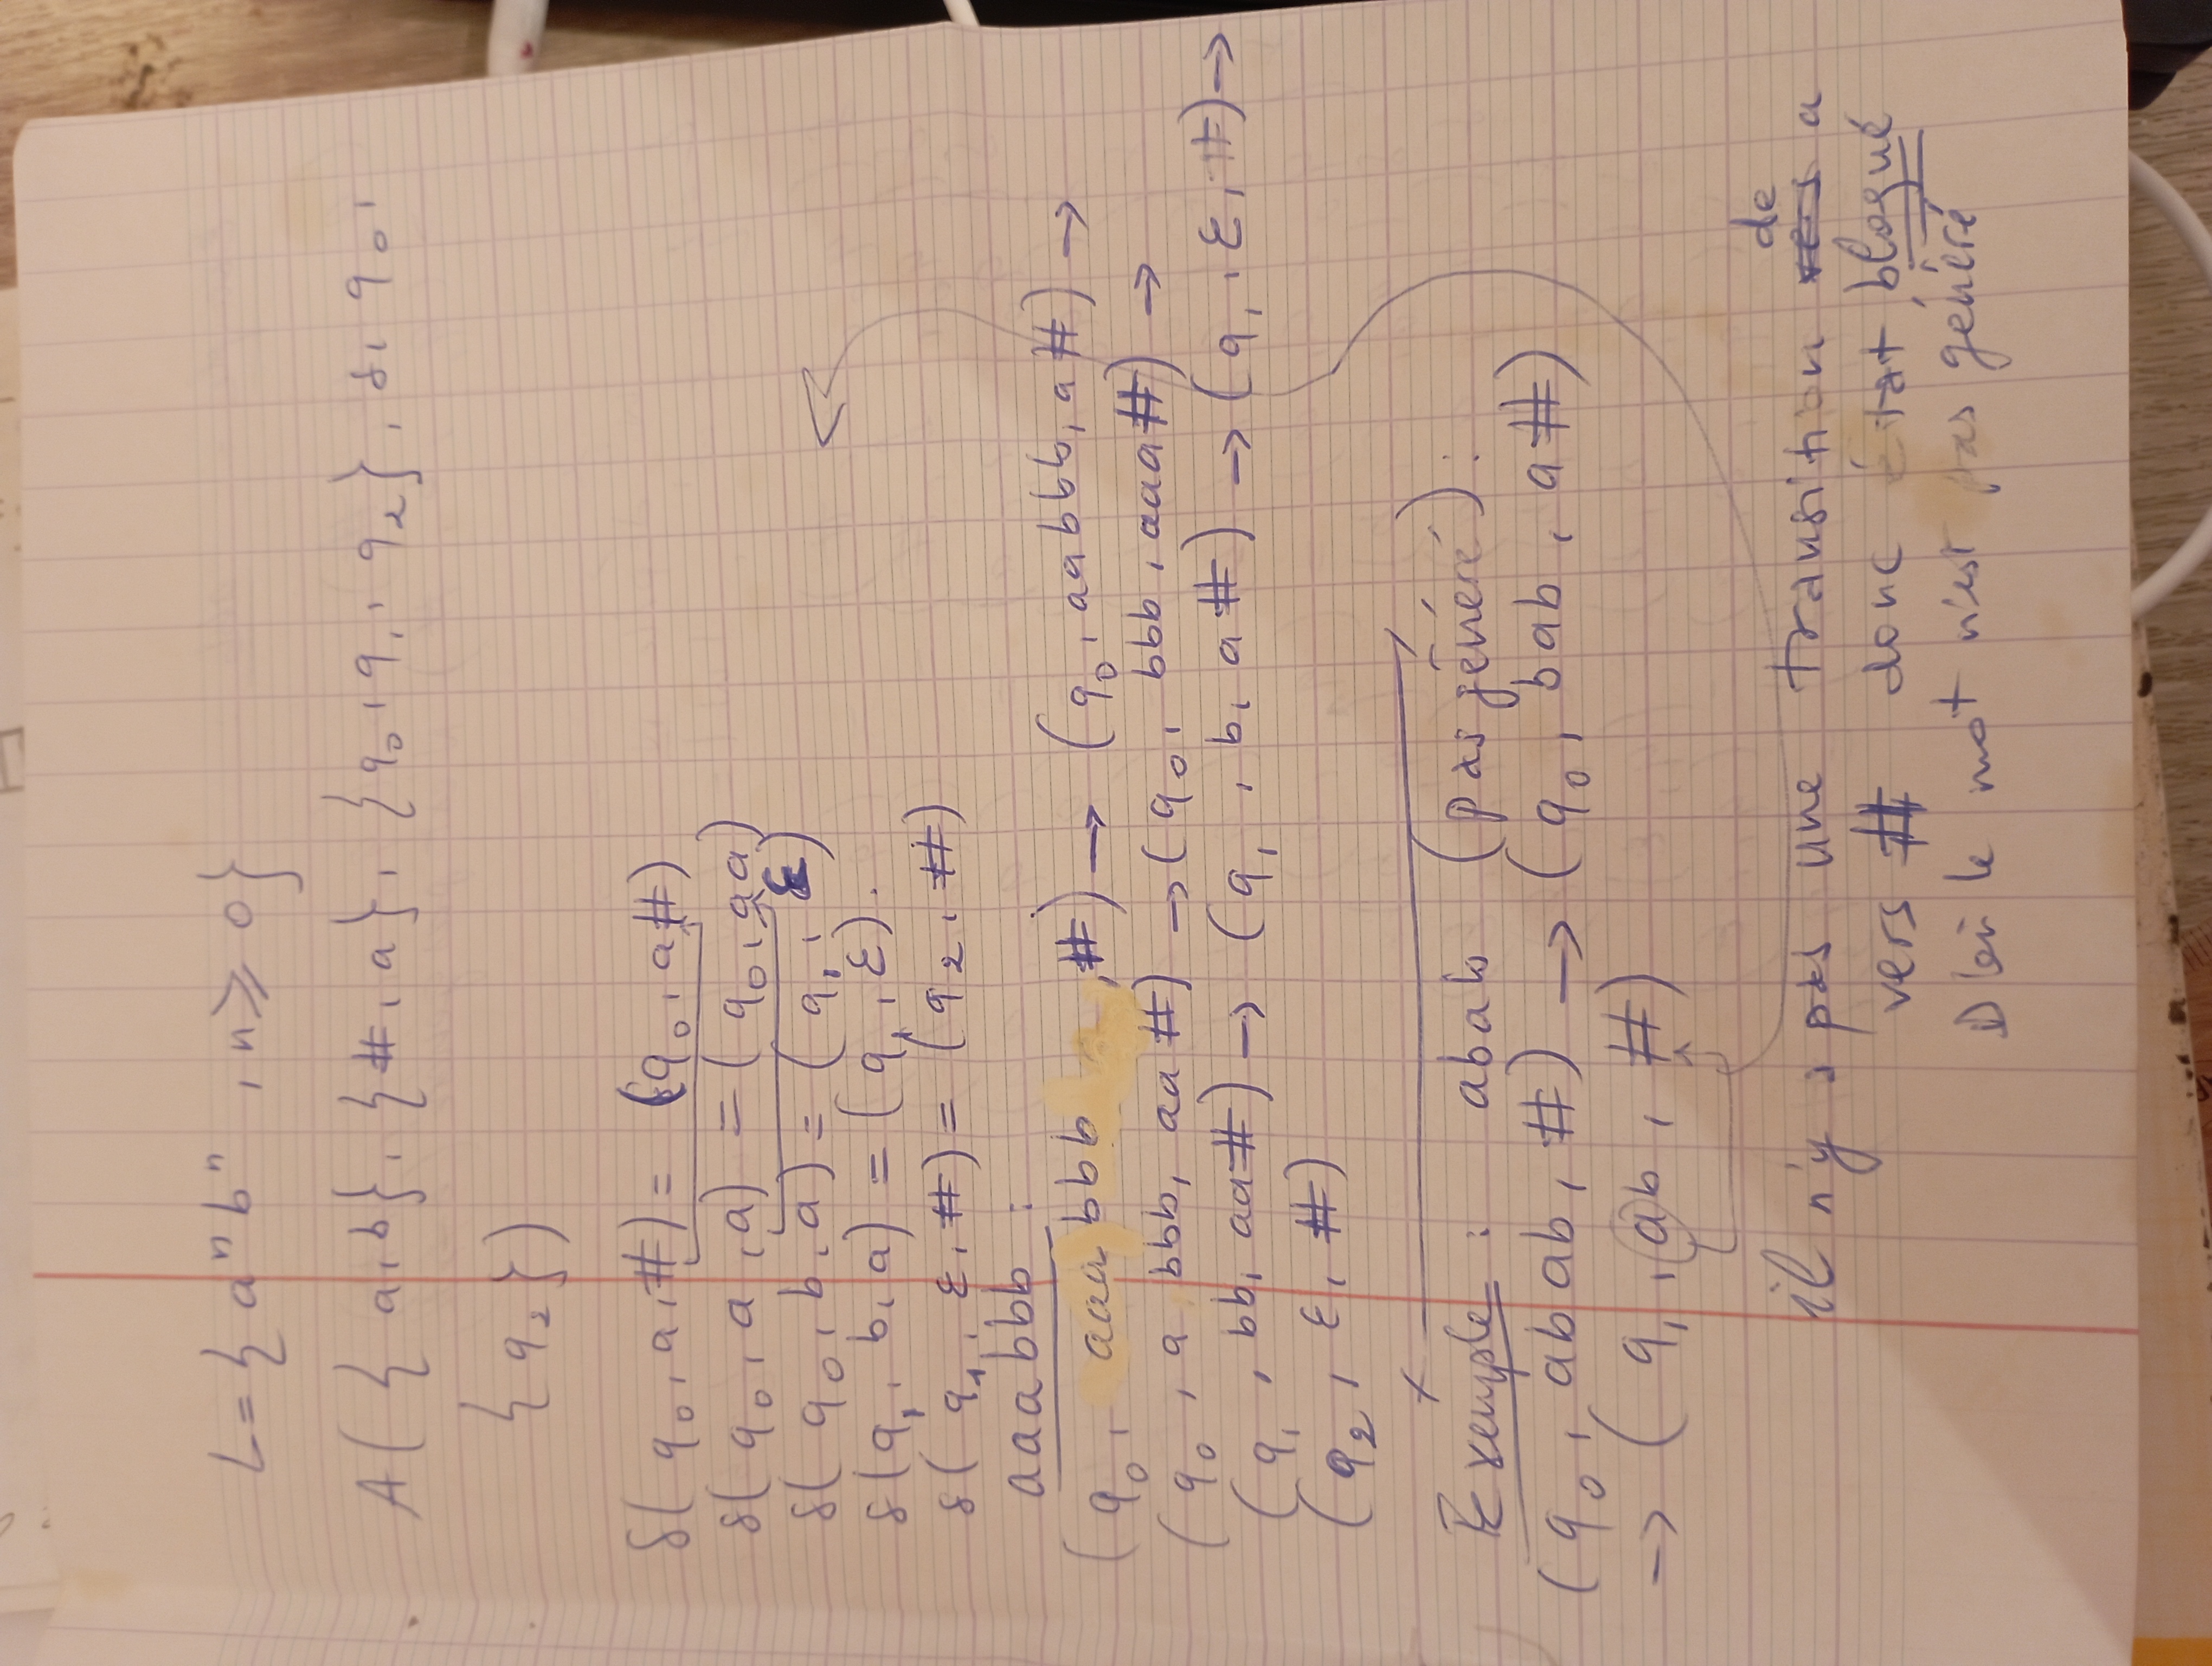 L = { aⁿ bⁿ , n ⩾ 0 }
A ( { a, b }, { #, a }, { q₀, q₁, q₂ }, δ, q₀,
{ q₂ } )
δ( q₀, a, # ) = ( q₀, a# )
δ( q₀, a, a ) = ( q₀, aa )
δ( q₀, b, a ) = ( q₁, ε )
δ( q₁, b, a ) = ( q₁, ε ).
δ( q₁, ε, # ) = ( q₂, # )
aaabbb :
( q₀, aaabbb, # ) → ( q₀, aabbb, a# ) →
( q₀, a bbb, aa# ) → ( q₀, bbb, aaa# ) →
( q₁, bb, aa# ) → ( q₁, b, a# ) → ( q₁, ε, # ) →
( q₂, ε, # )
Exemple : abab (pas généré) :
( q₀, abab, # ) → ( q₀, bab, a# )
→ ( q₁, ab, # )
de
il n'y a pas une transition vers a
vers # donc État bloqué
D'où le mot n'est pas généré